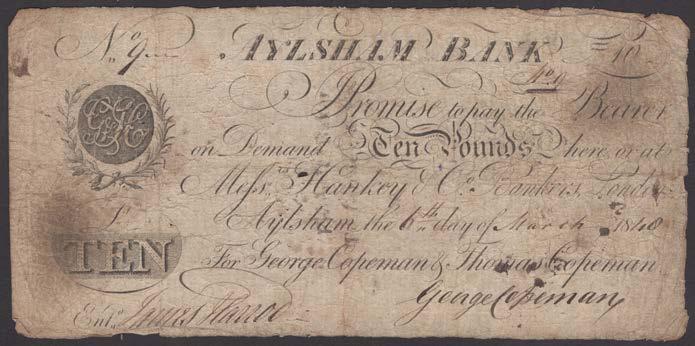 No. 9 AYLSHAM BANK 10
No. 9
I Promise to pay the Bearer
on Demand Ten Pounds here or at
Messrs. Hankey & Co. Bankers, London
Aylsham, the 6th day of March
For George Copeman & Thomas Copeman
TEN
George Copeman
Entd. James